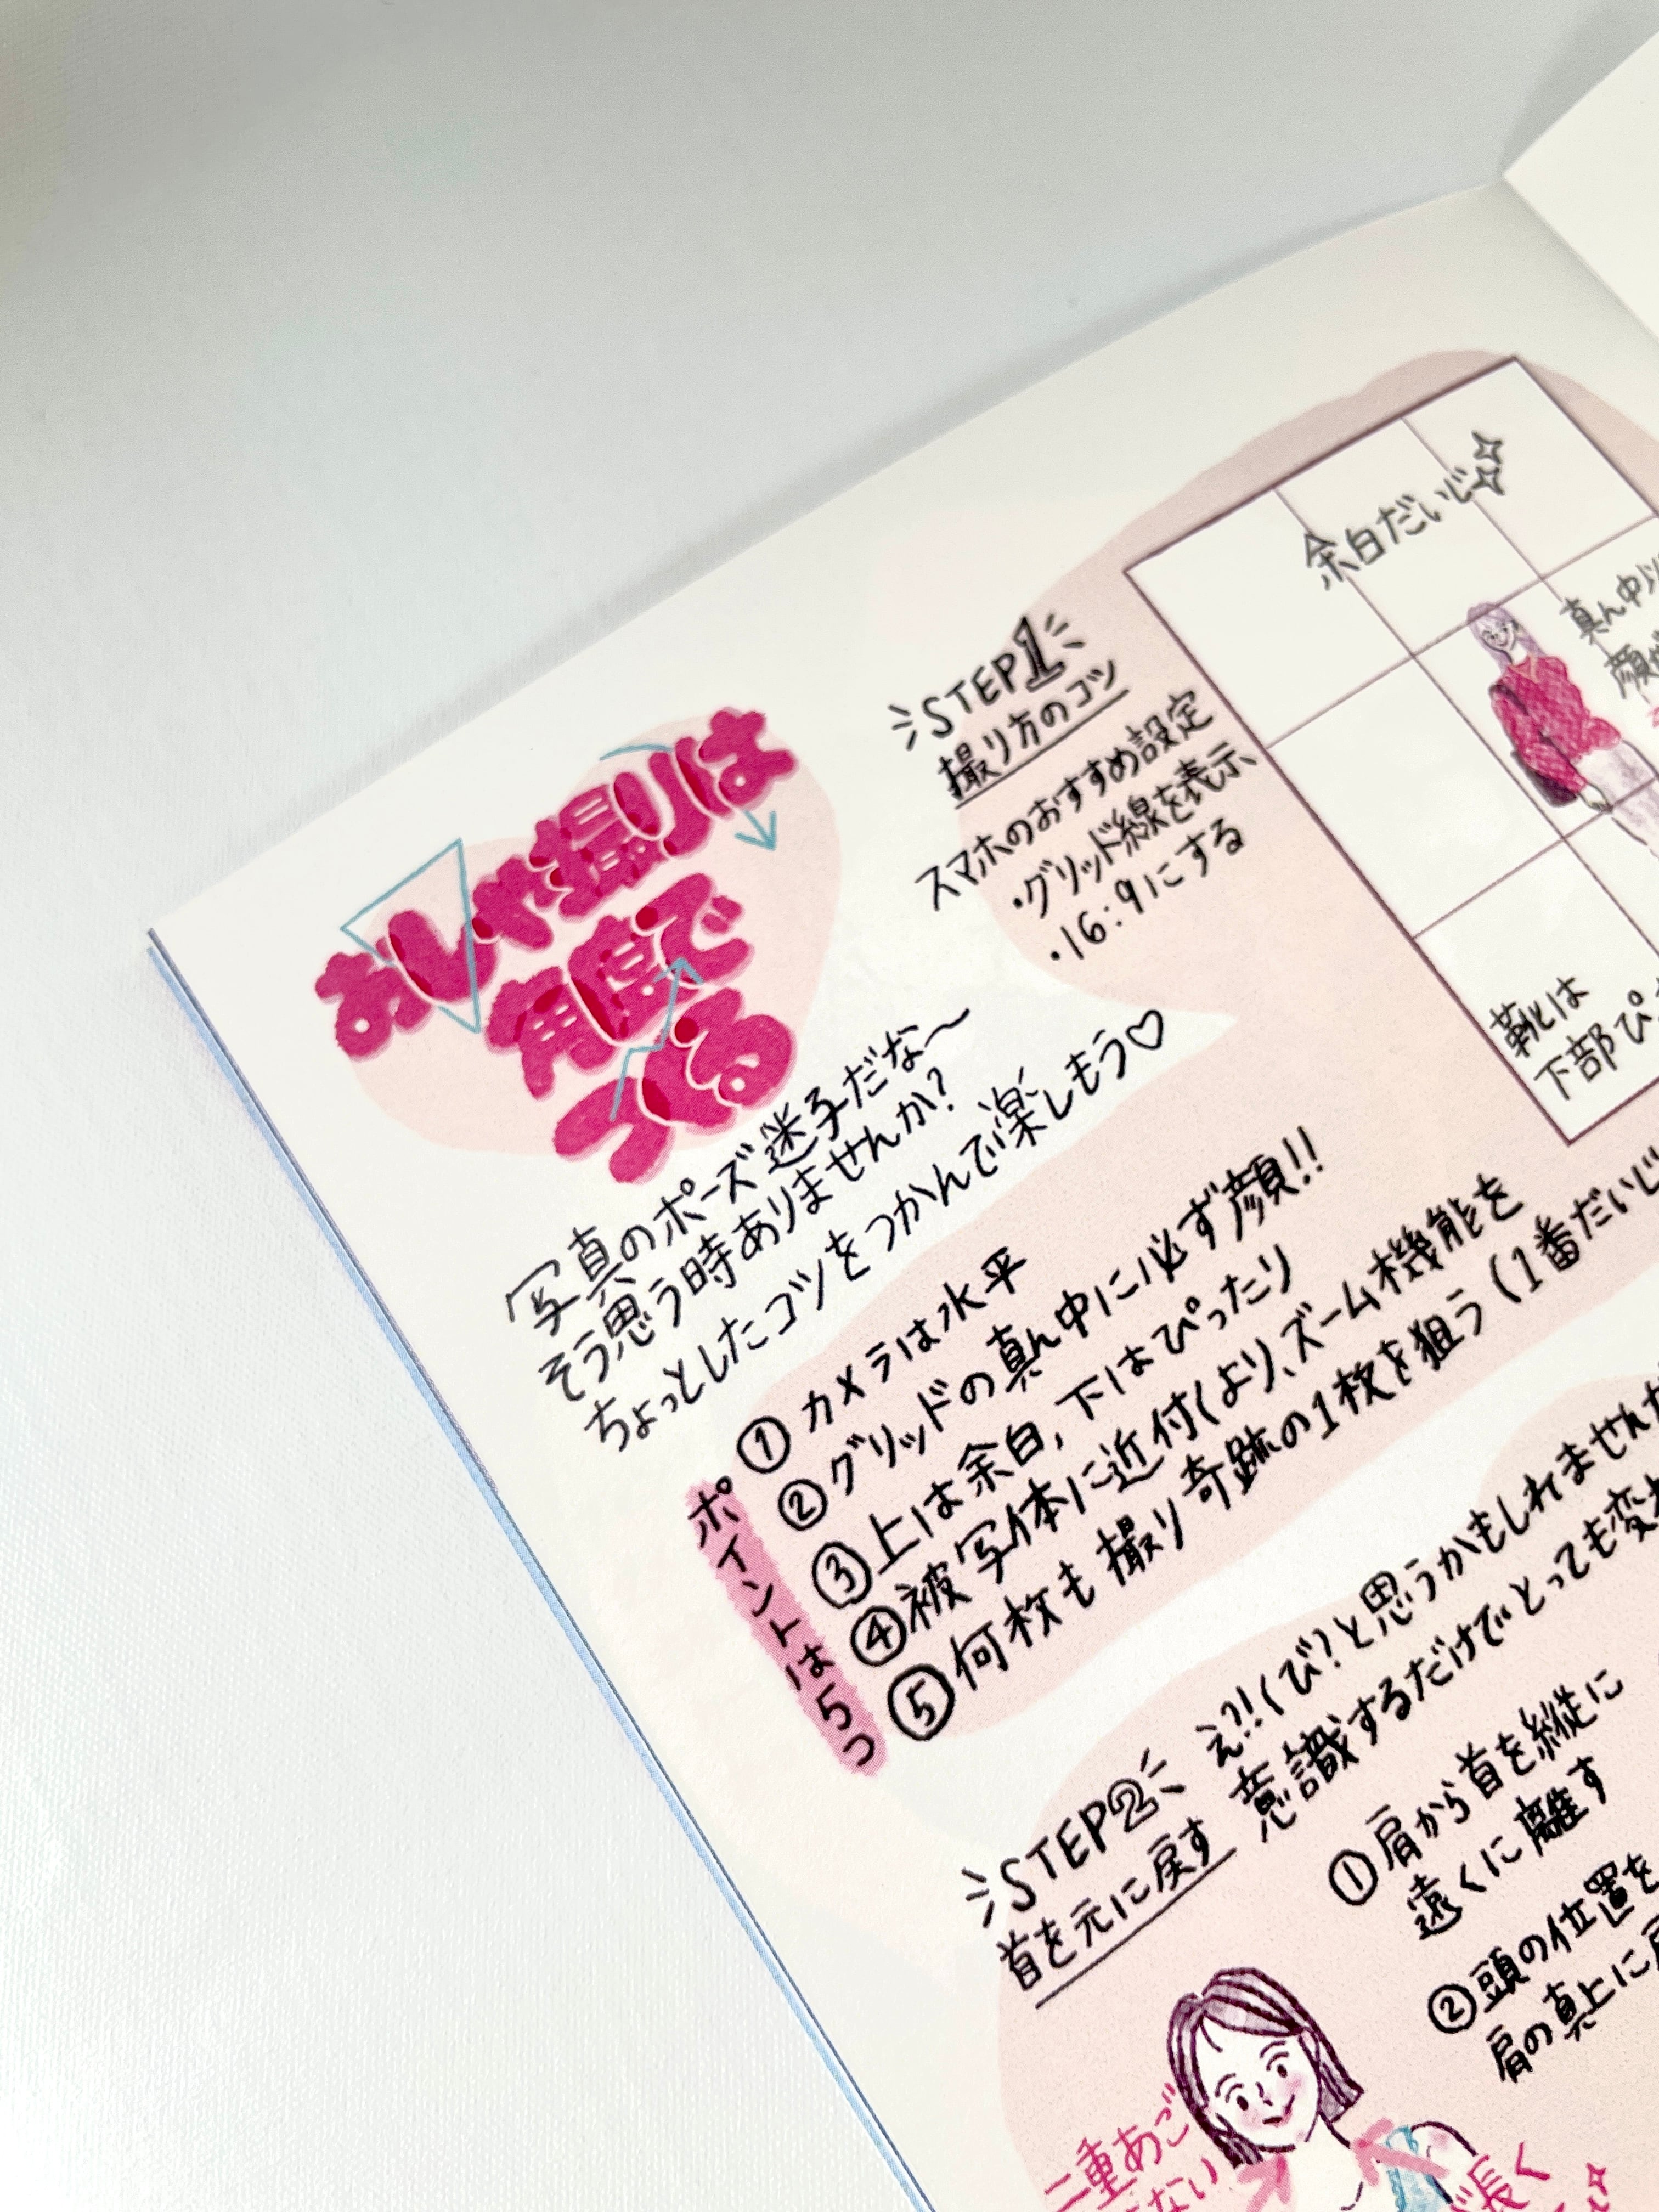 おしゃ撮りは
角度で
つくる
写真のポーズ迷子だな〜
そう思う時ありませんか?
ちょっとしたコツをつかんで楽しもう♡
STEP1
撮り方のコツ
スマホのおすすめ設定
・グリッド線を表示
・16:9にする
余白だいじ☆
真ん中
顔
靴は
下部ぴ
ポイントは5つ
①カメラは水平
②グリッドの真ん中に必ず顔!!
③上は余白、下はぴったり
④被写体に近付くより、ズーム機能を
⑤何枚も撮り奇跡の1枚を狙う(1番だいじ
STEP2
首を元に戻す
え?!くび?と思うかもしれませんが
意識するだけでとっても変
①肩から首を縦に
遠くに離す
②頭の位置を
肩の真上に
二重あご
ない
長く